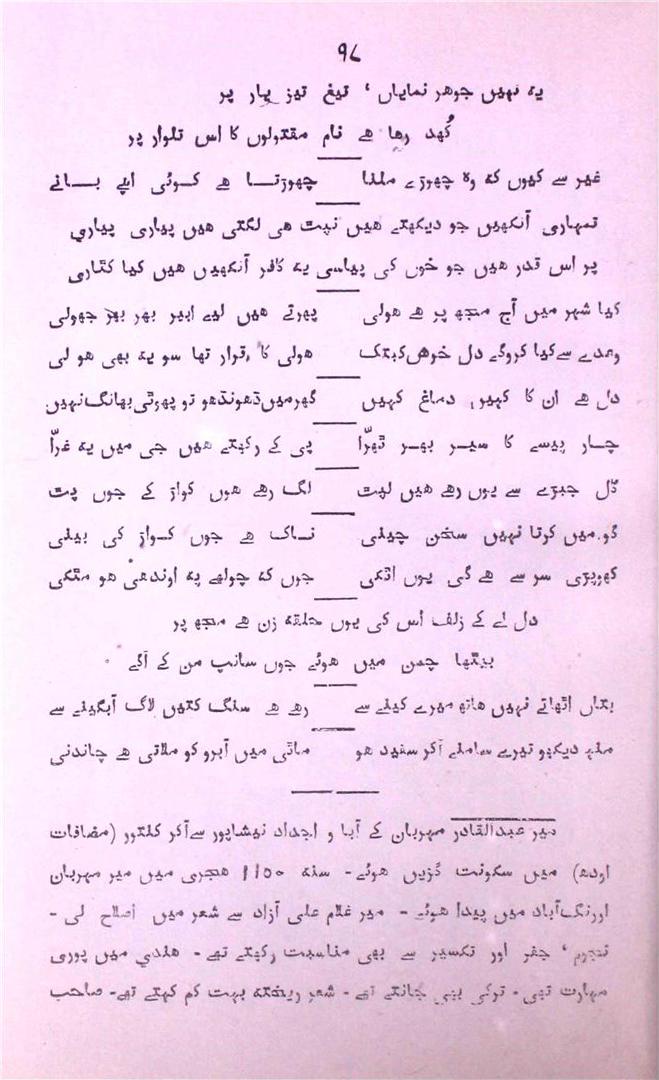 ۹۸
یہ نہیں جوھر نمایاں ، تیغ تیز یار پر
کُھد رھا ھے نام مقتولوں کا اس تلوار پر
غیر سے کیوں کہ وہ چھوڑے ملنا چھوڑتا ھے کوئی اپے بانے
تمہاری آنکھیں جو دیکھتے ھیں نپت ھی لگتی ھیں پیاری پیاری
پر اس قدر ھیں جو خوں کی پیاسی یہ کافر آنکھیں ھیں کیا کتاری
کیا شہر میں آج مجھ پر ھے ھولی پھرتے ھیں لیے ابیر بھر بھر جھولی
وعدے سے کیا کروگے دل خوش کبتک ھولی کا قرار تھا سو یہ بھی ھو لی
دل ھے ان کا کہیں دماغ کہیں گھر میں ڈھونڈھو تو پھوٹی بھانگ نہیں
چار پیسے کا سیر بھر ٹھرّا پی کے رکھتے ھیں جی میں یہ غرّا
گل جبڑے سے یوں رھے ھیں لپت لگ رھے ھوں کواڑ کے جوں پت
گو میں کرتا نہیں سخن چینی ناک ھے جوں کواڑ کی بینی
کھوپڑی سر سے ھے گی یوں اٹکی جوں کہ چولھے پہ اوندھی ھو مٹکی
دل لے کے زلف اُس کی یوں حلقہ زن ھے مجھ پر
بیٹھا چمن میں ھوئے جوں سانپ من کے آگے
بتاں اٹھاتے نہیں ھاتھ میرے کینے سے رھے ھے سنگ کتیں لاگ آبگینے سے
منہ دیکھو تیرے سامنے آکر سفید ھو ماٹی میں آبرو کو ملاتی ھے چاندنی
میر عبدالقادر مہربان کے آبا و اجداد نیشاپور سے آکر کنتور (مضافات
اودھ) میں سکونت گزیں ھوئے - سنہ ۱۱۵۰ ھجری میں میر مہربان
اورنگ آباد میں پیدا ھوئے - میر غلام علی آزاد سے شعر میں اصلاح لی -
نجوم ، جفر اور تکسیر سے بھی مناسبت رکھتے تھے - ھندی میں پوری
مہارت تھی - ترکی بھی جانتے تھے - شعر ریختہ بہت کم کہتے تھے - صاحب